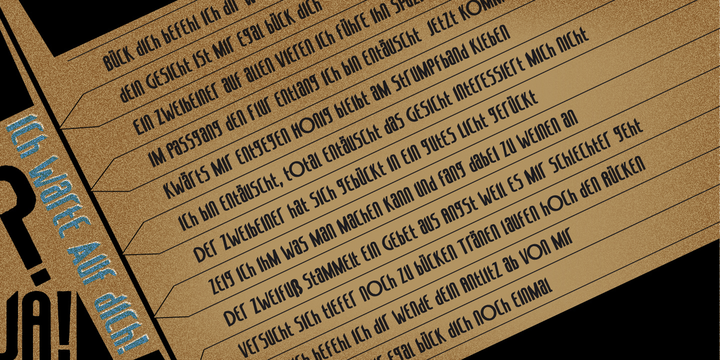 Bück dich befehl ich dir
dein Gesicht ist mir egal bück dich
Ein Zweibeiner auf allen Vieren ich führe ihn
im Passgang den Flur entlang ich bin entäuscht Jetzt
Kwärts mir entgegen Honig bleibt am Strumpfband kleben
ich bin entäuscht, total entäuscht das Gesicht interessiert mich nicht
Der Zweibeiner hat sich gebückt in ein gutes Licht gerückt
zeig ich ihm was man machen kann und fang dabei zu weinen an
Der Zweifuß stammelt ein Gebet aus Angst weil es mir schlechter geht
versucht sich tiefer noch zu bücken Tränen laufen hoch den Rücken
befehl ich dir wende dein Antlitz ab von mir
egal bück dich noch einmal
Ich warte auf dich!
?
JA!